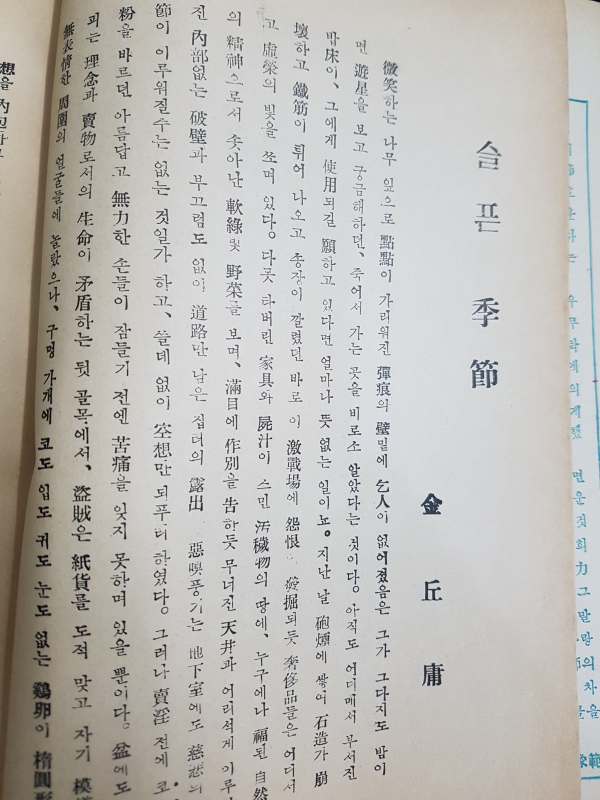 슬픈 季節
金丘庸
微笑하는 나무 잎으로 點點이 가리워진 彈痕의 壁밑에 乞人이 없어졌음은 그가 그다지도 밤이
면 遊星을 보고 궁금해하던、죽어서 가는 곳을 비로소 알았다는 것이다。아직도 어디메서 부서진
밥床이、그에게 使用되길 願하고 있다면 얼마나 뜻 없는 일이뇨。지난 날 砲煙에 쌓여 石造가 崩
壞하고 鐵筋이 튀어 나오고 송장이 깔렸던 바로 이 激戰場에 怨恨이 發掘되듯 奢侈品들은 어디서
고 虛榮의 빛을 쏘며 있다。다못 타버린 家具와 屍汁이 스민 汚穢物의 땅에、누구에나 福된 自然
의 精神으로서 솟아난 軟綠빛 野菜를 보며、滿目에 作別을 告하듯 무너진 天井과 어리석게 이루
진 內部없는 破壁과 부끄럼도 없이 道路만 남은 집터의 露出 惡臭풍기는 地下室에도 慈悲의
節이 이루워질수는 없는 것일가 하고、쓸데 없이 空想만 되푸리 하였다。그러나 賣淫 전에 코
粉을 바르던 아름답고 無力한 손들이 잠들기 전엔 苦痛을 잊지 못하며 있을 뿐이다。盆에도
피는 理念과 賣物로서의 生命이 矛盾하는 뒷 골목에서、盜賊은 紙貨를 도적 맞고 자기 模
無表情한 周圍의 얼굴들에 놀랐으나、구멍 가개에 코도 입도 귀도 눈도 없는 鷄卵이 楕圓形
想을